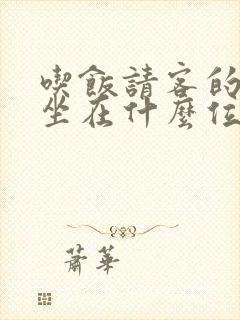 喫飯請客的
坐在什麼位
蕭華